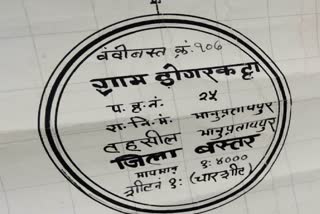 बंदोबस्त क्रं. १०७
ग्राम डोंगरकट्टा
प. ह. नं. २५
रा. नि. मं. भानुप्रतापपुर
तहसील भानुप्रतापपुर
जिला बस्तर
मापमान १: ४०००
शीट नं १: (चार शीट)